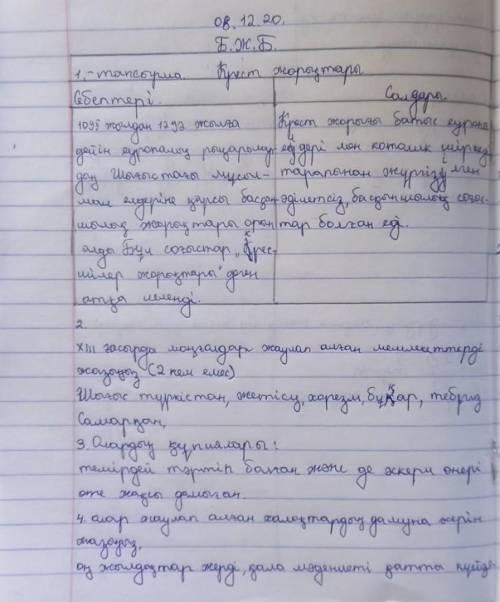 08.12.20.
Б.Ж.Б.
1,-тапсырма. Крест жорықтары
Себептері. Салдары
1095 жылдан 1293 жылға
дейін еуропалық рыцарьлар
дың Шығыстағы мұсыл-
ман елдеріне қарсы басқын
шылық жорықтары орын
алда Бұл соғыстар "Крес-
шілер жорықтары" деген
атқа иеленді.
Крест жорығы батыс еуропа
елдері мен католик шіркеуі
тарапынан жүргізген
әділетсіз, басқыншылық соғыс
тар болған еді.
2
XIII ғасырда моңғалдар жаулап алған мемлекеттерді
жазыңыз (2 кем емес)
Шығыс түркістан, жетісу, харезм, бұқар, тебриз
Самарқан,
3. Олардың құпиялары:
темірдей тәртіп болған және де әскери өнері
өте жақсы дамыған.
4. олар жаулап алған халықтардың дамуна әсерін
жазыңыз.
оң жылдықтар жерді, қала мәдениеті қатты күйзе